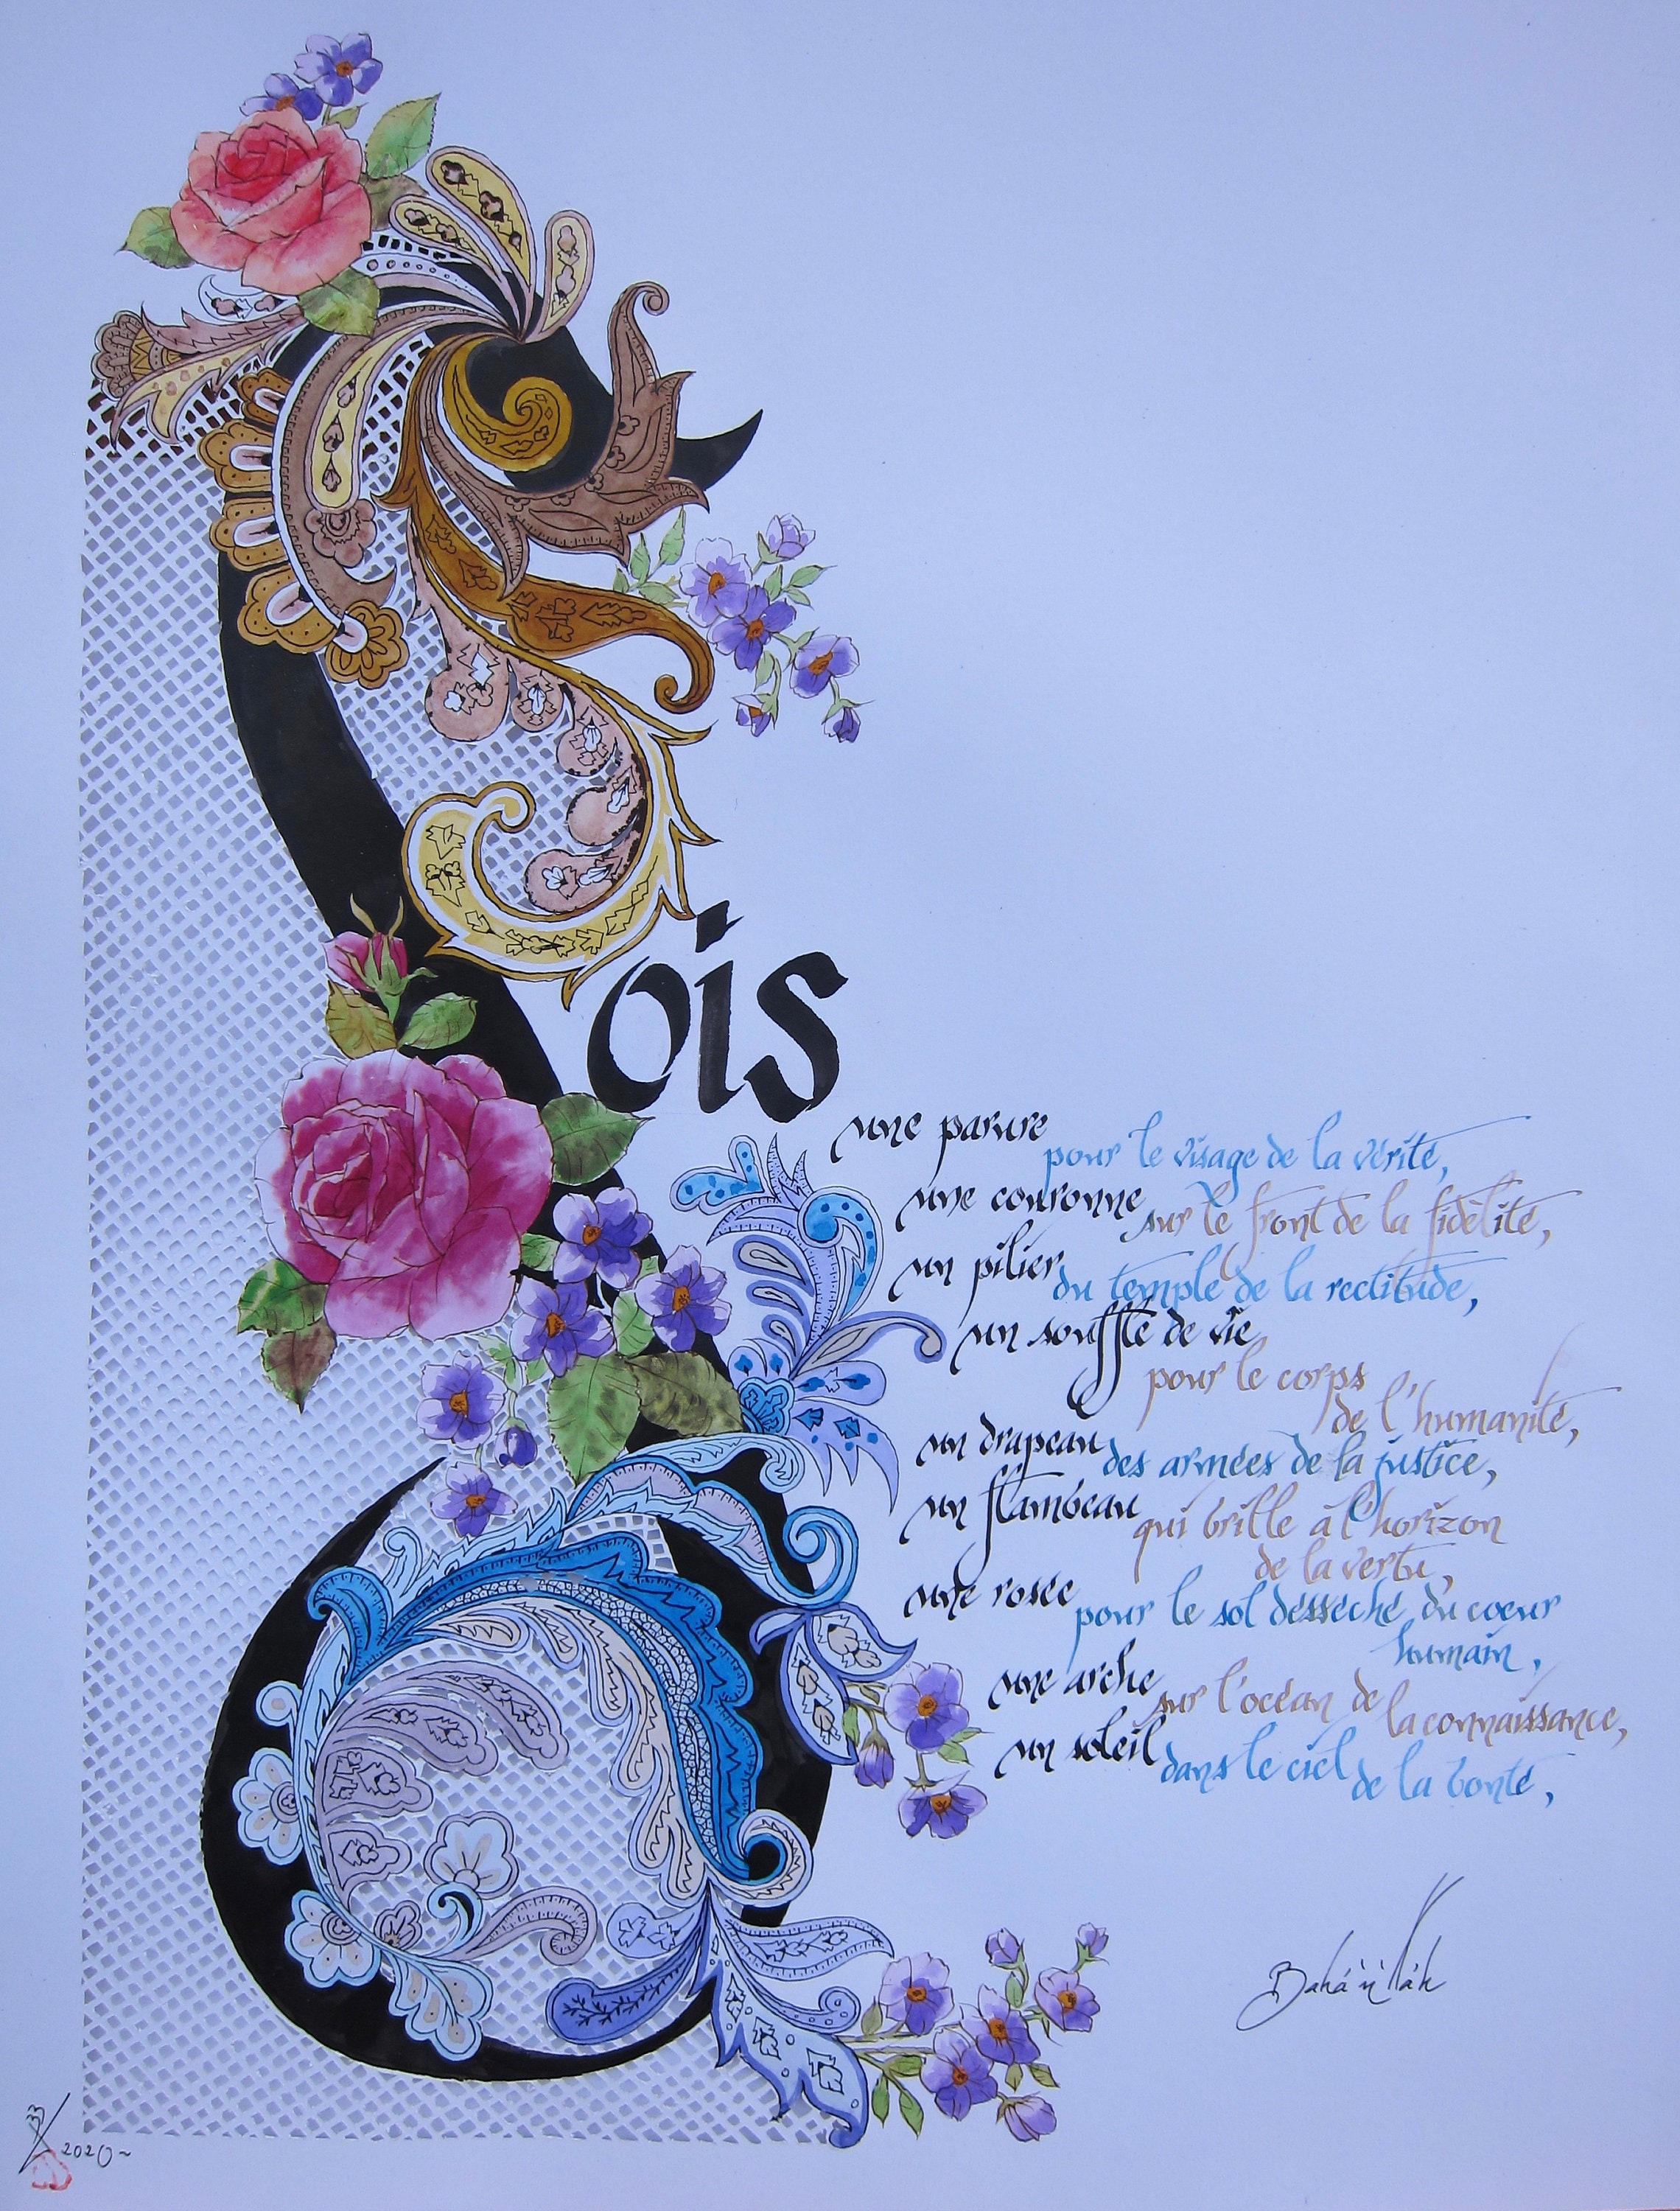 Sois
une parure
pour le visage de la vérité,
une couronne
sur le front de la fidélité,
un pilier
du temple de la rectitude,
un souffle de vie
pour le corps
de l'humanité,
un drapeau
des armées de la justice,
un flambeau
qui brille à l'horizon
de la vertu,
une rosée
pour le sol desséché du coeur
humain,
une arche
sur l'océan de la connaissance,
un soleil
dans le ciel de la bonté,
Bahá'u'lláh
2020~